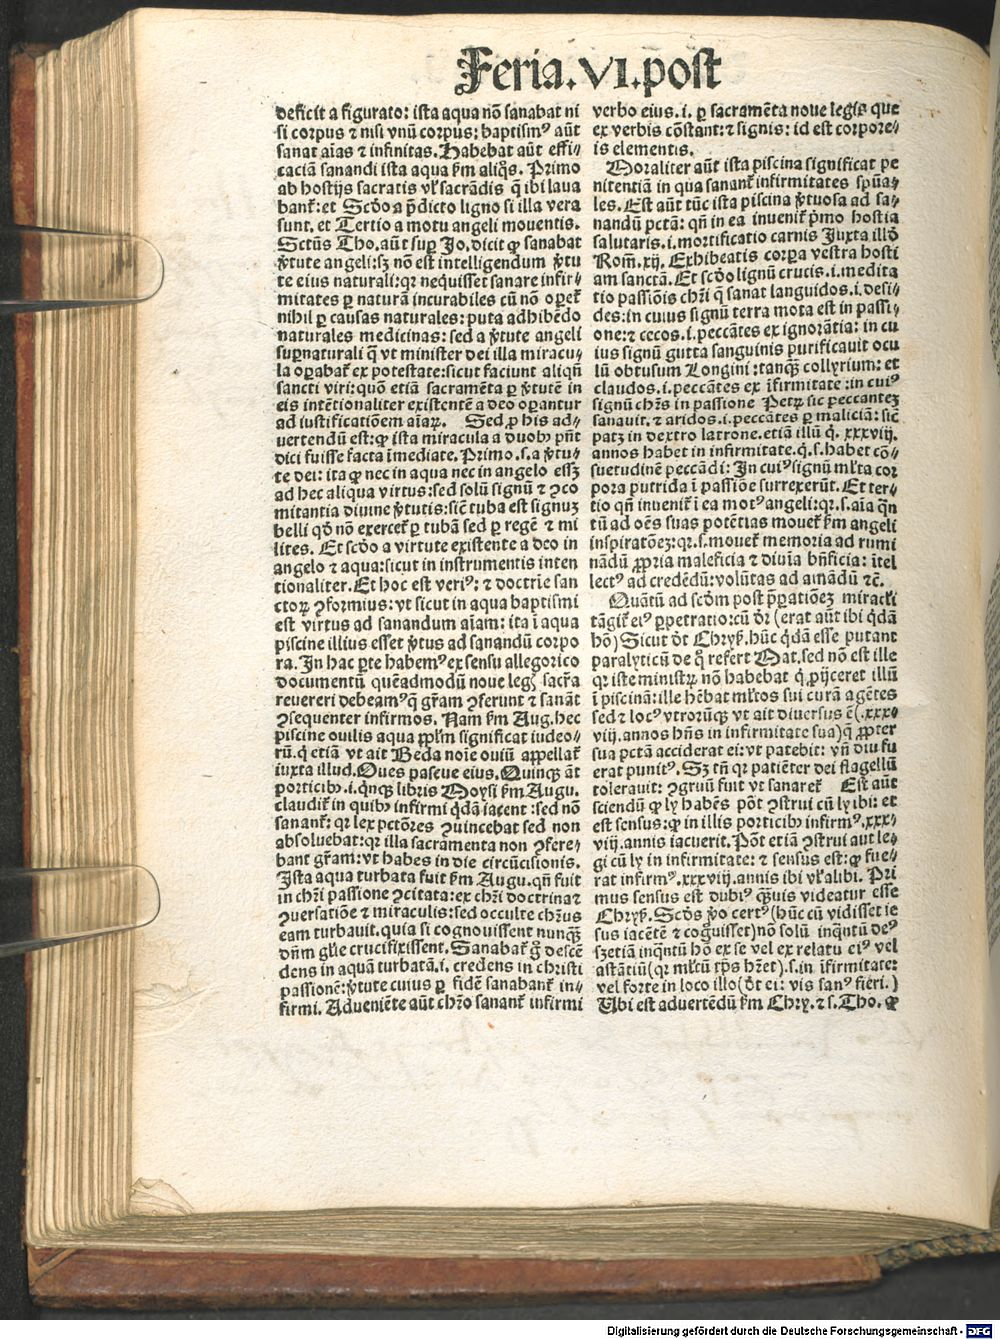 Feria.VI.p̃ost
deficit a figurato: ista aqua nõ sanabat ni
si corpus ⁊ nisi vnũ corpus: baptismꝰ aũt
sanat aĩas ⁊ infinitas. Habebat aũt effi⸗
caciã sanandi ista aqua ẜm aliq̃s. Primo
ab hostijs sacratis vl̓ sacrãdis q̃ ibi laua
bant̃: et Scd̃o a p̃dicto ligno si illa vera
sunt. et Tertio a motu angeli mouentis.
Sctũs Tho. aũt suꝑ Jo. dicit ꝙ sanabat
v̓tute angeli: sꝫ nõ est intelligendum v̓tu
te eius naturali: qꝛ nequisset sanare infir⸗
mitates ꝑ naturã incurabiles cũ nõ oꝑet̃
nihil ꝑ causas naturales: puta adhibẽdo
naturales medicinas: sed a v̓tute angeli
suꝑnaturali q̃ vt minister dei illa miracu⸗
la oꝑabat̃ ex potestate: sicut faciunt aliqñ
sancti viri: quõ etiã sacramẽta ꝑ v̓tutẽ in
eis intẽtionaliter existentẽ a deo oꝑantur
ad iustificatiõem aĩaꝝ. Sed ꝓ his ad⸗
uertendũ est: ꝙ ista miracula a duobꝰ pñt
dici fuisse facta ĩmediate. Primo .s. a v̓tu⸗
te dei: ita ꝙ nec in aqua nec in angelo essꝫ
ad hec aliqua virtus: sed solũ signũ ⁊ ꝯco
mitantia diuine v̓tutis: sic̃ tuba est signuꝫ
belli qd̃ nõ exercet̃ ꝑ tubã sed ꝑ regẽ ⁊ mi
lites. Et scd̃o a virtute existente a deo in
angelo ⁊ aqua: sicut in instrumentis inten
tionaliter. Et hoc est veriꝰ: ⁊ doctrĩe san
ctoꝝ ꝯformius: vt sicut in aqua baptismi
est virtus ad sanandum aĩam: ita ĩ aqua
piscine illius esset v̓tus ad sanandũ corpo
ra. In hac ꝑte habemꝰ ex sensu allegorico
documentũ quẽadmodũ noue legꝭ sacr̃a
reuereri debeamꝰ q̃ gr̃am ꝯferunt ⁊ sanãt
ꝯsequenter infirmos. Nam ẜm Aug. hec
piscine ouilis aqua pp̃l̓m significat iudeo⸗
rũ. q̓ etiã vt ait Beda noĩe ouiũ appellat̃
iuxta illud. Oues pascue eius. Quinqꝫ ãt
porticibꝰ .i. q̓nqꝫ libris Moysi ẜm Augu.
claudit̃ in quibꝰ infirmi q̓dã iacent: sed nõ
sanant̃: qꝛ lex pctõres ꝯuincebat sed non
absoluebat: qꝛ illa sacramenta non ꝯfere⸗
bant gr̃am: vt habes in die circũcisionis.
Ista aqua turbata fuit ẜm Augu. qñ fuit
in chr̃i passione ꝯcitata: ex chr̃i doctrina ⁊
ꝯuersatiõe ⁊ miraculis: sed occulte chr̃us
eam turbauit. quia si cognouissent nunqꝫ̃
dñm gl̓ie crucifixissent. Sanabat̃ g̊ descẽ
dens in aquã turbatã .i. credens in christi
passionẽ: v̓tute cuius ꝑ fidẽ sanabant̃ in⸗
firmi. Adueniẽte aũt chr̃o sanant̃ infirmi
verbo eius .i. ꝑ sacramẽta noue legis que
ex verbis cõstant: ⁊ signis: id est corpore⸗
is elementis.
Moraliter aũt ista piscina significat pe
nitentiã in qua sanant̃ infirmitates spũa⸗
les. Est aũt tũc ista piscina v̓tuosa ad sa⸗
nandũ pctã: qñ in ea inuenit̃ p̓mo hostia
salutaris .i. mortificatio carnis Iuxta illd̃
Rom̃. xij. Exhibeatis corꝑa vestra hosti
am sanctã. Et scd̃o lignũ crucis .i. medita
tio passiõis chr̃i q̃ sanat languidos .i. desi⸗
des: in cuius signũ terra mota est in passi⸗
one: ⁊ cecos .i. peccãtes ex ignorãtia: in cu
ius signũ gutta sanguinis purificauit ocu
lũ obtusum Longini: tanqꝫ̃ collyrium: et
claudos .i. peccãtes ex ĩfirmitate: in cuiꝰ
signũ chr̃s in passione Petꝝ sic peccanteꝫ
sanauit. ⁊ aridos .i. peccãtes ꝑ maliciã: sic̃
patꝫ in dextro latrone. etiã illũ q̓ .xxxviij.
annos habet in infirmitate. q̓ .s. habet cõ⸗
suetudinẽ peccãdi: In cuiꝰ signũ ml̓ta cor
pora putrida ĩ passiõe surrexerũt. Et ter⸗
tio qñ inuenit̃ ĩ ea motꝰ angeli: qꝛ .s. aĩa q̃n
tũ ad oẽs suas potẽtias mouet̃ ẜm angeli
inspiratõeꝫ: qꝛ .s. mouet̃ memoria ad rumi
nãdũ ꝓpria maleficia ⁊ diuĩa bñficia: ĩtel
lectꝰ ad credẽdũ: volũtas ad amãdũ ⁊c̃.
Quãtũ ad scd̃m post p̃ꝑatiõeꝫ miracl̓i
tãgit̃ eiꝰ ꝑpetratio: cũ dr̃ (erat aũt ibi q̓dã
hõ) Sicut dt̃ Chryẜ. hũc q̓dã esse putant
paralyticũ de q̊ refert Mat. sed nõ est ille
qꝛ iste ministꝝ nõ habebat q̓ ꝓijceret illũ
ĩ piscinã: ille hẽbat ml̓tos sui curã agẽtes
sed ⁊ locꝰ vtrorũqꝫ vt ait diuersus ẽ (.xxx⸗
viij. annos hñs in infirmitate sua) q̃ ꝓpter
sua pctã acciderat ei: vt patebit: vñ diu fu
erat punitꝰ. Sꝫ tñ qꝛ patiẽter dei flagellũ
tolerauit: ꝯgruũ fuit vt sanaret̃ Est aũt
sciendũ ꝙ ly habẽs põt ꝯstrui cũ ly ibi: et
est sensus: ꝙ in illis porticibꝰ infirmꝰ .xxx⸗
viij. annis iacuerit. Põt etiã ꝯstrui aut le⸗
gi cũ ly in infirmitate: ⁊ sensus est: ꝙ fue⸗
rat infirmꝰ .xxxviij. annis ibi vl̓ alibi. Pri
mus sensus est dubiꝰ qꝫ̃uis videatur esse
Chryẜ. Scd̃s v̊o certꝰ (hũc cũ vidisset ie
sus iacẽtẽ ⁊ cognouisset) nõ solũ inq̃ntũ deꝰ
sꝫ etiã inq̃ntũ hõ ex se vel ex relatu eiꝰ vel
astãtiũ (qꝛ ml̓tũ tp̃s hr̃et) .s. in ĩfirmitate:
vel forte in loco illo (dt̃ ei: vis sanꝰ fieri.)
Ubi est aduertẽdũ ẜm Chry. ⁊ s. Tho. ꝙ
Digitalisierung gefördert durch die Deutsche Forschungsgemeinschaft - DFG